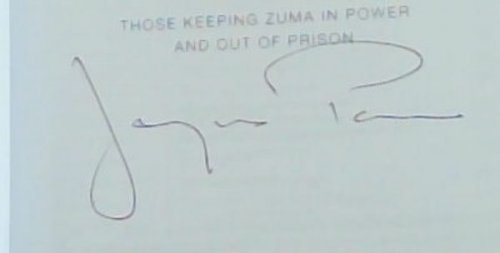 THOSE KEEPING ZUMA IN POWER
AND OUT OF PRISON